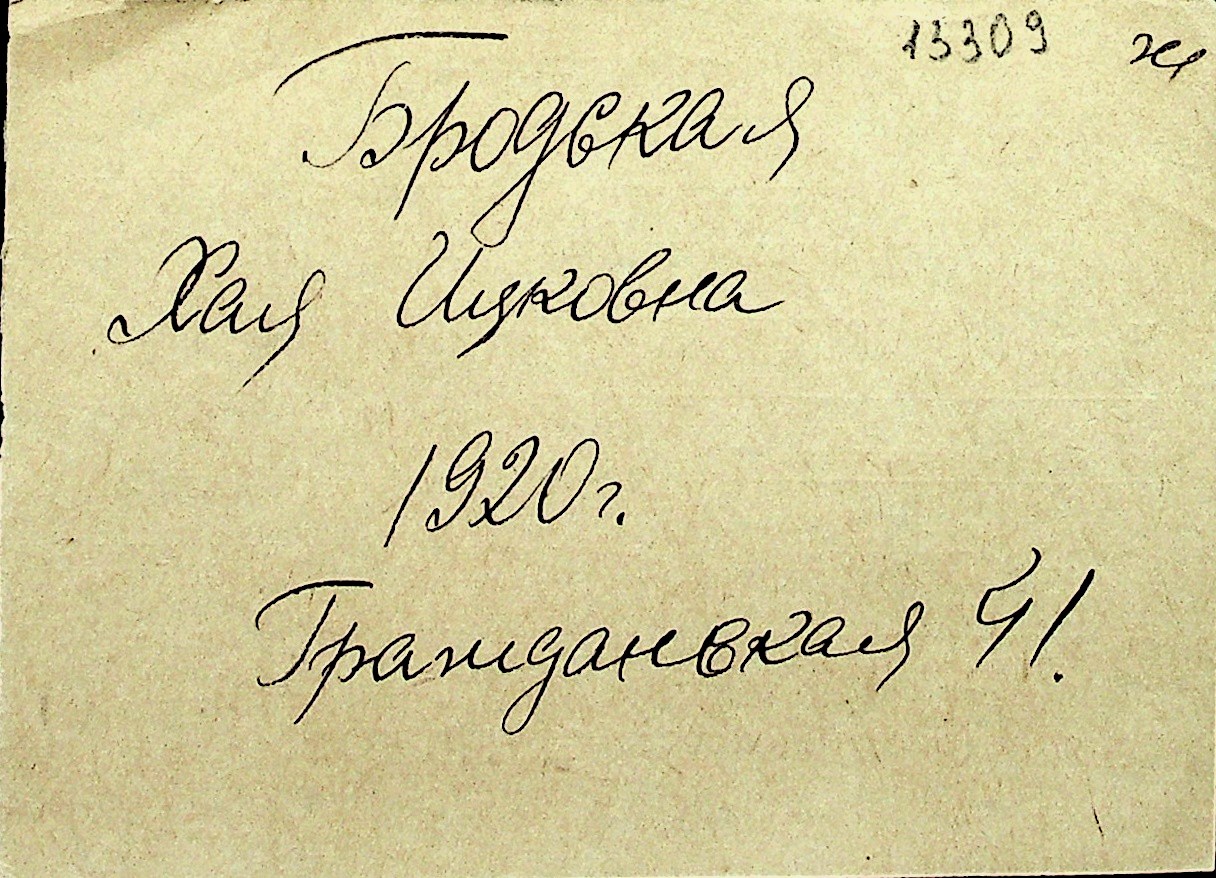 13309
Бродская
Хая Ицковна
1920 г.
Гражданская 41.